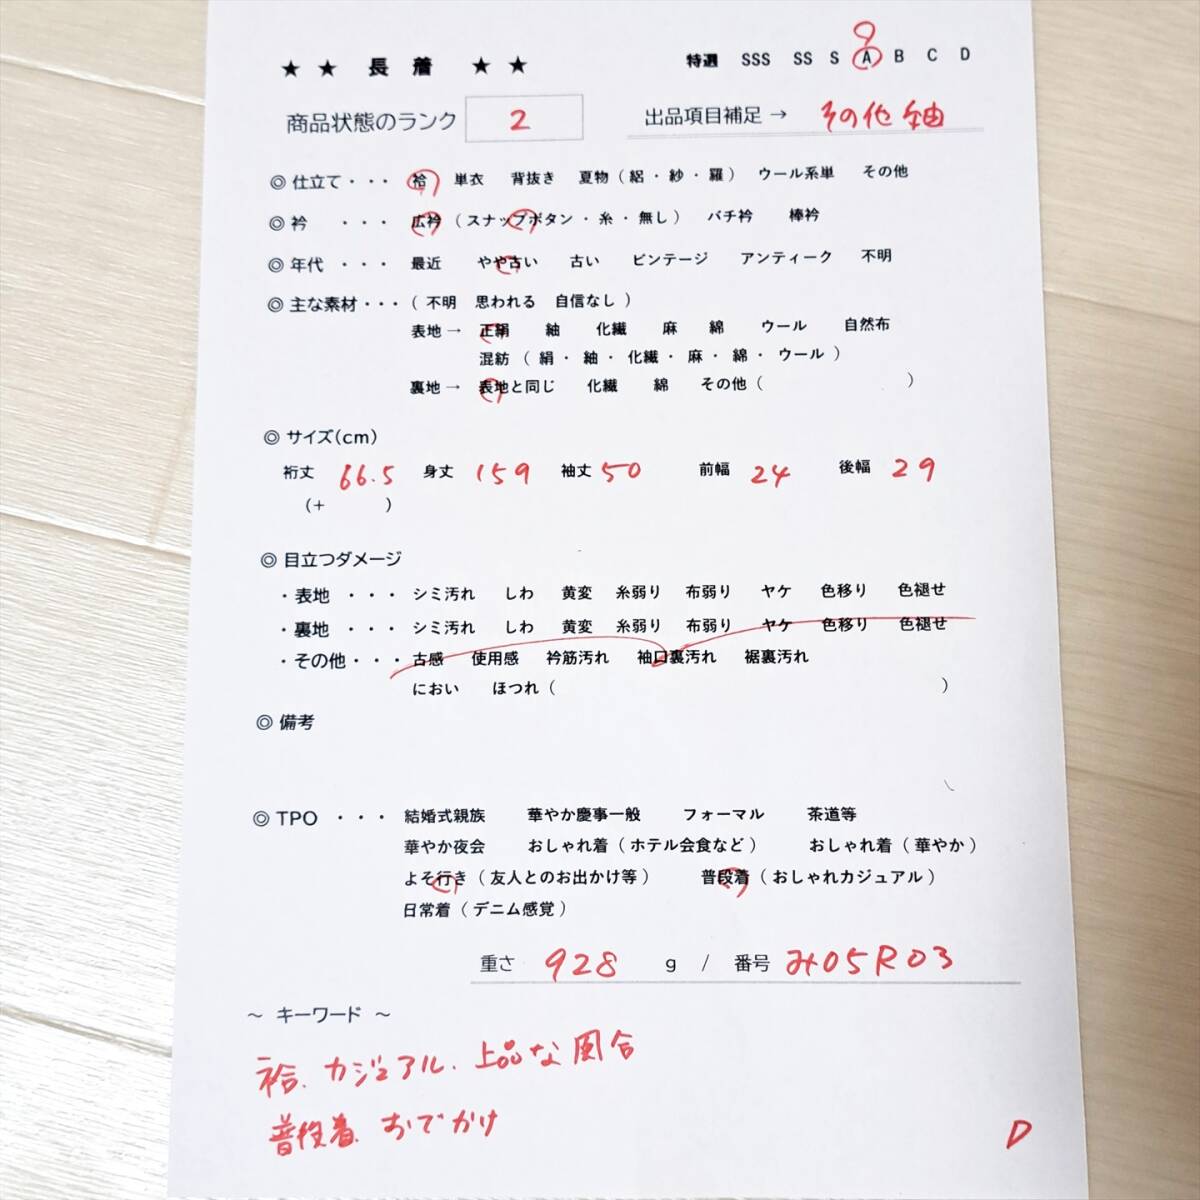 ★ ★ 長 着 ★ ★
特選 SSS SS S A B C D
商品状態のランク 2
出品項目補足 → その他 紬
◎ 仕立て ・・・ 袷 単衣 背抜き 夏物 ( 絽 ・ 紗 ・ 羅 ) ウール系単 その他
◎ 衿 ・・・ 広衿 ( スナップボタン ・ 糸 ・ 無し ) バチ衿 棒衿
◎ 年代 ・・・ 最近 やや古い 古い ビンテージ アンティーク 不明
◎ 主な素材 ・・・ ( 不明 思われる 自信なし )
表地 → 正絹 紬 化繊 麻 綿 ウール 自然布
混紡 ( 絹 ・ 紬 ・ 化繊 ・ 麻 ・ 綿 ・ ウール )
裏地 → 表地と同じ 化繊 綿 その他 ( )
◎ サイズ(cm)
裄丈 66.5 身丈 159 袖丈 50 前幅 24 後幅 29
(+ )
◎ 目立つダメージ
・ 表地 ・・・ シミ汚れ しわ 黄変 糸弱り 布弱り ヤケ 色移り 色褪せ
・ 裏地 ・・・ シミ汚れ しわ 黄変 糸弱り 布弱り ヤケ 色移り 色褪せ
・ その他 ・・・ 古感 使用感 衿筋汚れ 袖口裏汚れ 裾裏汚れ
におい ほつれ ( )
◎ 備考
◎ TPO ・・・ 結婚式親族 華やか慶事一般 フォーマル 茶道等
華やか夜会 おしゃれ着 ( ホテル会食など ) おしゃれ着 ( 華やか )
よそ行き ( 友人とのお出かけ等 ) 普段着 ( おしゃれカジュアル )
日常着 ( デニム感覚 )
重さ 928 g / 番号 み05R03
～ キーワード ～
袷、カジュアル、上品な風合
普段着、おでかけ
D